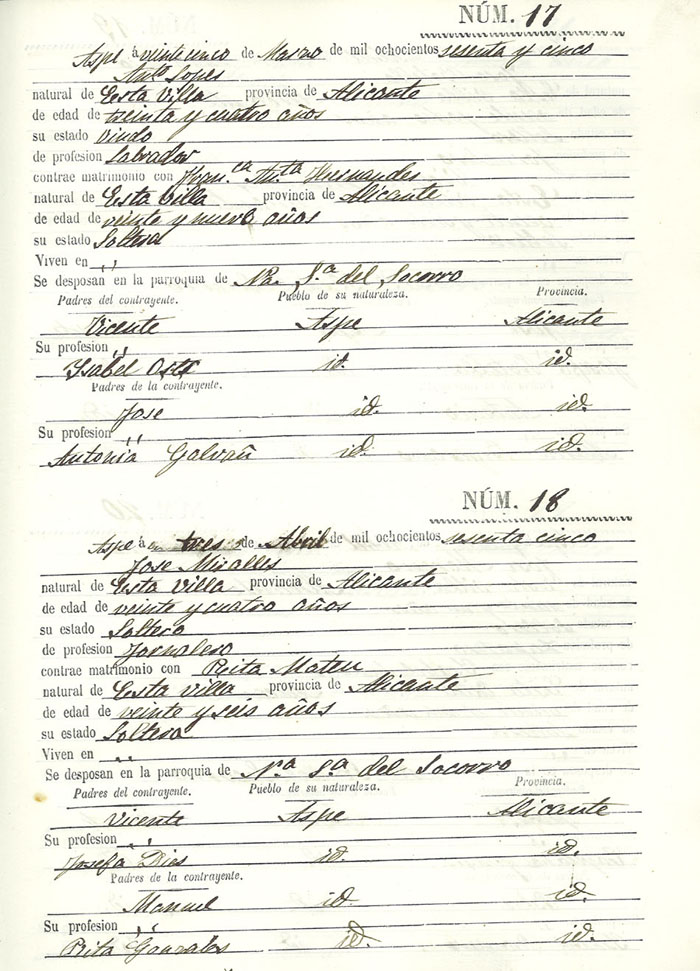 NÚM. 17
Aspe á veinte cinco de Marzo de mil ochocientos sesenta y cinco
Antº Lopes
natural de Esta Villa provincia de Alicante
de edad de treinta y cuatro años
su estado Viudo
de profesion Labrador
contrae matrimonio con Fran.ca An.ta Hernandes
natural de Esta Villa provincia de Alicante
de edad de veinte y nueve años
su estado Soltera
Viven en ,,
Se desposan en la parroquia de Nª. S.ª del Socorro
Padres del contrayente. Pueblo de su naturaleza. Provincia.
Vicente Aspe Alicante
Su profesion ,,
Ysabel id. id.
Padres de la contrayente.
Jose id. id.
Su profesion ,,
Antonia Galvañ id. id.
NÚM. 18
Aspe á tres de Abril de mil ochocientos sesenta cinco
Jose Miralles
natural de Esta Villa provincia de Alicante
de edad de veinte y cuatro años
su estado Soltero
de profesion Jornalero
contrae matrimonio con Rita Mateu
natural de Esta villa provincia de Alicante
de edad de veinte y seis años
su estado Soltera
Viven en ,,
Se desposan en la parroquia de Nª Sª del Socorro
Padres del contrayente. Pueblo de su naturaleza. Provincia.
Vicente Aspe Alicante
Su profesion ,,
Josefa Dies id. id.
Padres de la contrayente.
Manuel id. id.
Su profesion ,,
Rita Gonzales id. id.